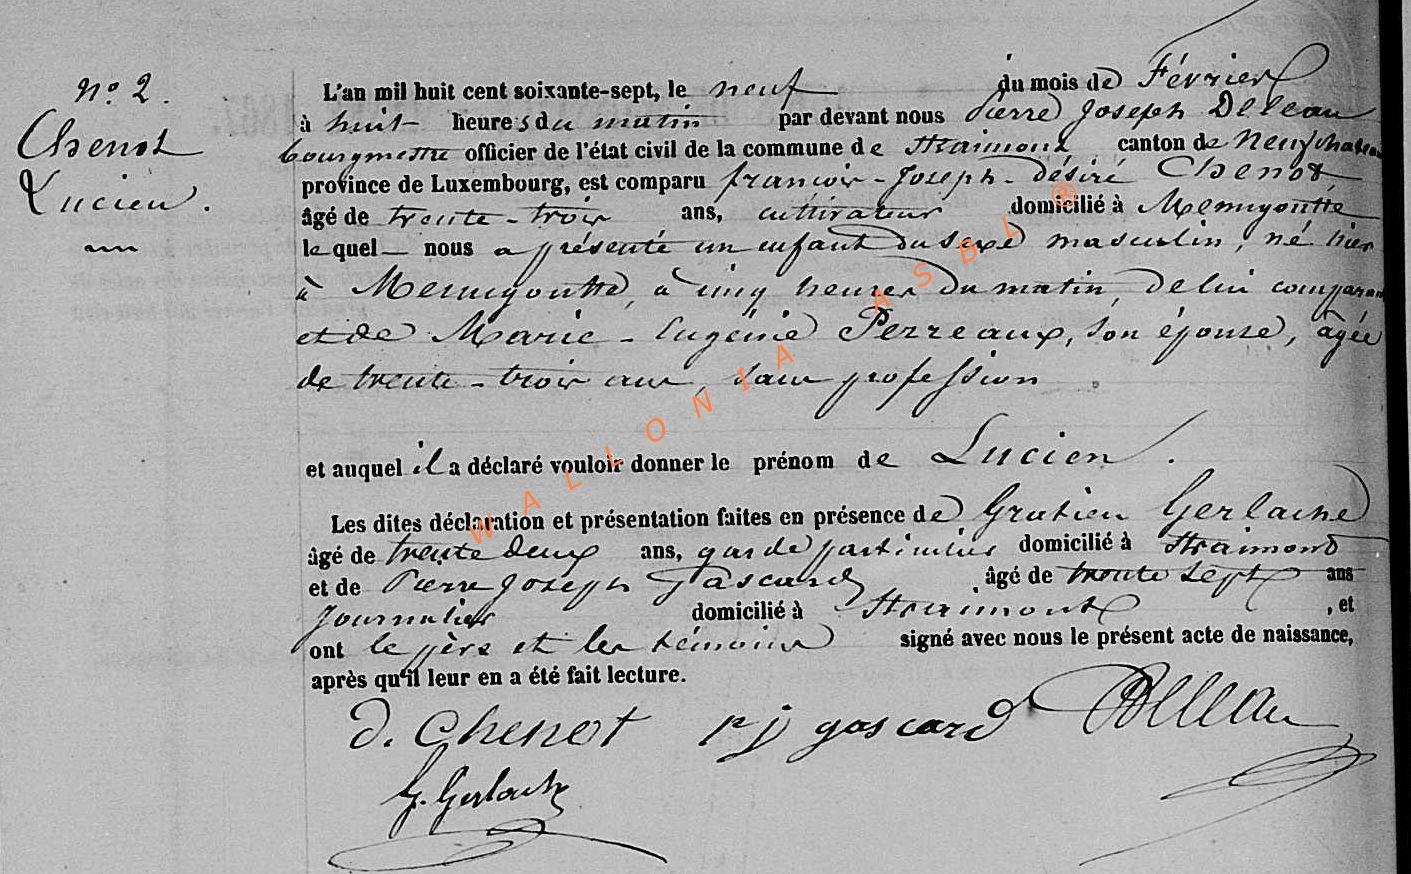 N° 2.
Chenot
Lucien.
L'an mil huit cent soixante-sept, le neuf du mois de Février
à huit heures du matin par devant nous Pierre Joseph Deleau
bourgmestre officier de l'état civil de la commune de Straimont canton de Neufchateau
province de Luxembourg, est comparu françois-Joseph-Désiré Chenot
âgé de trente-trois ans, cultivateur domicilié à Menugoutte
lequel nous a présenté un enfant du sexe masculin, né hier
à Menugoutte, à cinq heures du matin, de lui comparant
et de Marie-Eugénie Perreaux, son épouse, âgée
de trente-trois ans, sans profession
et auquel il a déclaré vouloir donner le prénom de Lucien.
Les dites déclaration et présentation faites en présence de Gratien Gerlache
âgé de trente deux ans, garde particulier domicilié à Straimont
et de Pierre Joseph Gascard âgé de trente sept ans
Journalier domicilié à Straimont, et
ont le père et les témoins signé avec nous le présent acte de naissance,
après qu'il leur en a été fait lecture.
D. Chenot P J gascard Deleau
G. Gerlache
WALLONIA ASBL ®